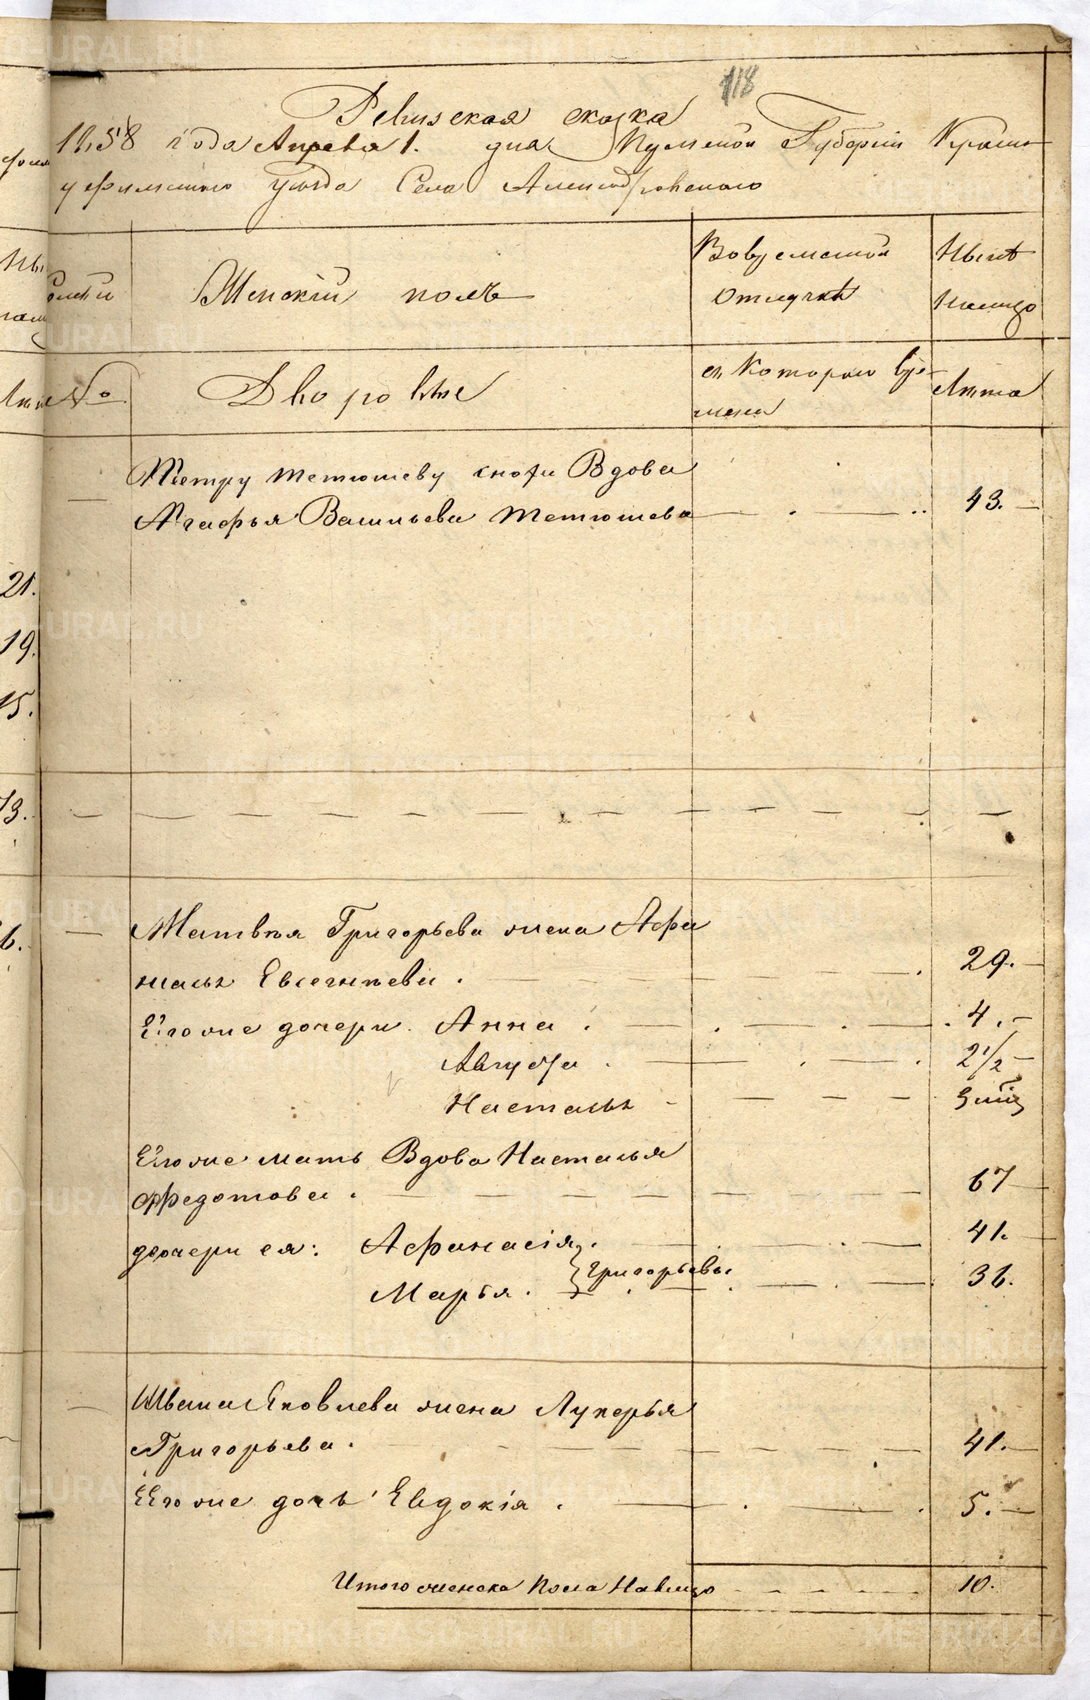 118
Ревизская сказка
1858 года Апреля 1. дня Пермской Губернiи Красно
уфимскаго Уезда Села Александровскаго
Женскiй полъ
Во временной
отлучкѣ
Нынѣ
налицо
№
Дворовые
съ котораго вре
мени
Лѣта
Петру Тетюшеву сноха Вдова
Агафья Васильева Тетюшева 43.
21.
19.
15.
73.
6.
Матвѣя Григорьева жена Афи
ногья Евгенѣева 29.
Его же дочери Анна 4.
Августа 2 1/2
Наталья
Его же мать Вдова Наталья
Федотова 67
дочери ея: Афанасiя 41.
Григорьевы
Марья 36.
Ивана Яковлева жена Лукерья
Григорьева 41.
Его же дочь Евдокiя 5.
Итого женска пола налицо 10.